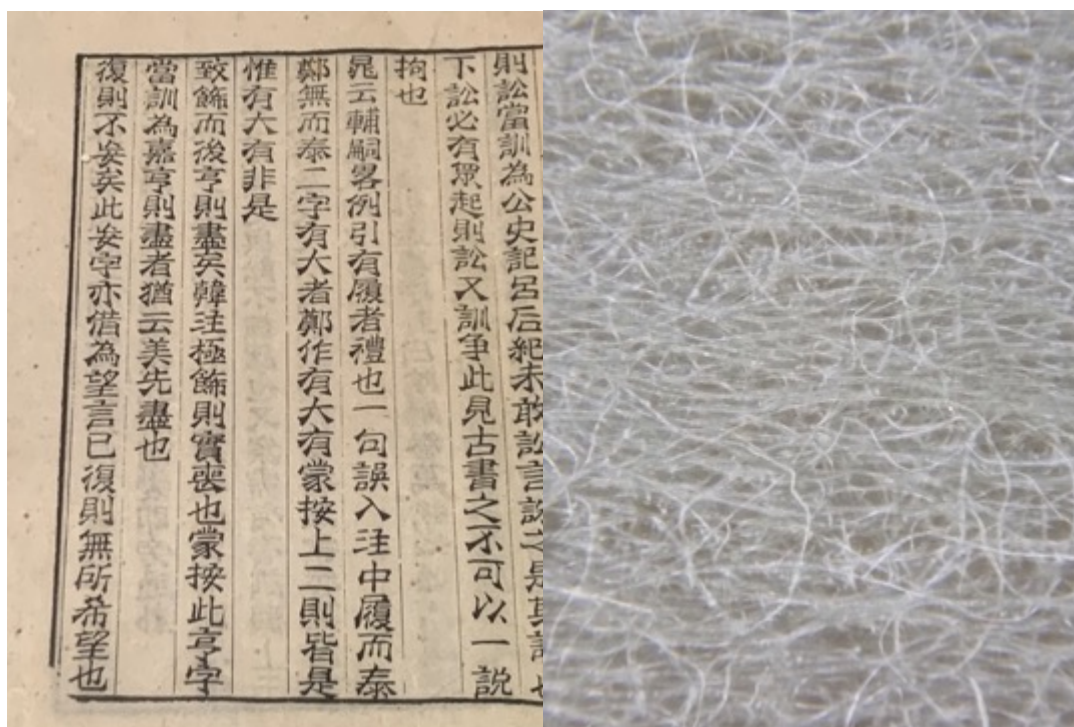 則訟當訓為公史記呂后紀未敢訟言誅之是其
下訟必有眾起則訟又訓争此見古書之不可以一說
拘也
晁云輔嗣畧例引有履者禮也一句誤入注中履而泰
鄭無而泰二字有大者鄭作有大有蒙按上二則皆是
惟有大有非是
致飾而後亨則盡矣韓注極飾則實喪也蒙按此亨字
當訓為嘉亨則盡者猶云美先盡也
復則不妄矣此妄字亦借為望言已復則無所希望也